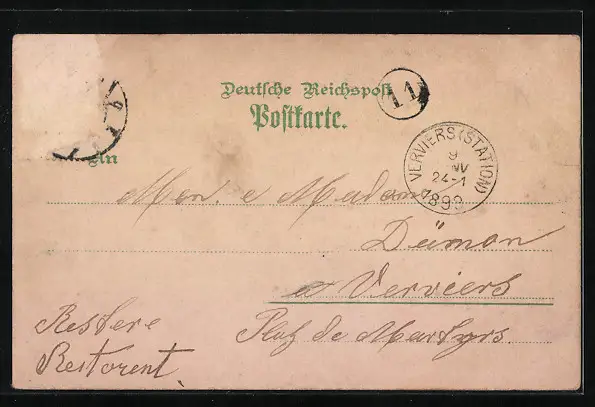 Deutsche Reichspost
Postkarte.
11
VERVIERS (STATION)
9
24-1
1899
An
Mon. e Madame
Dümon
a Verviers
Plaz de Martyrs.
Restere
Restorent